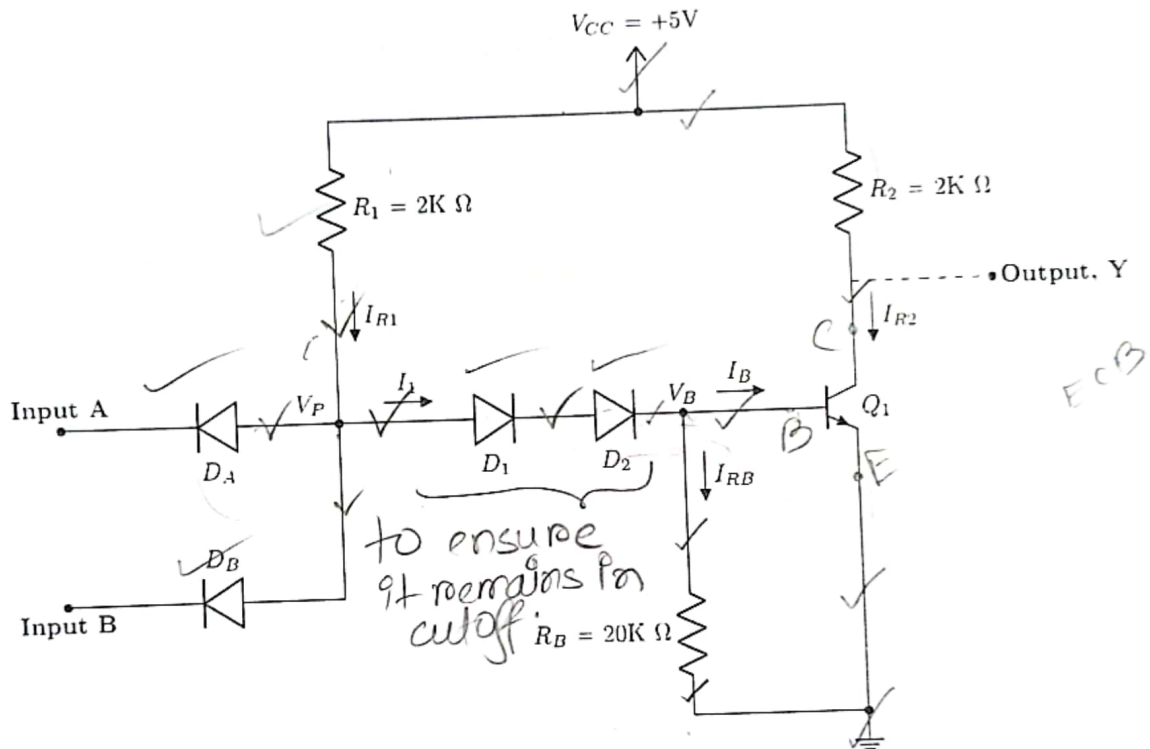 V_CC = +5V
R_1 = 2K Ω
R_2 = 2K Ω
Output, Y
I_R1
I_R2
C
Input A
V_P
I_1
V_B
I_B
Q_1
E C B
B
D_A
D_1
D_2
I_RB
E
to ensure
it remains in
cutoff.
D_B
Input B
R_B = 20K Ω